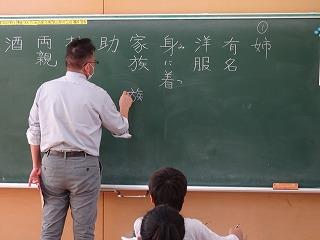 ①
姉
有名
洋服
身に着
つ
家族
族
助
両親
酒